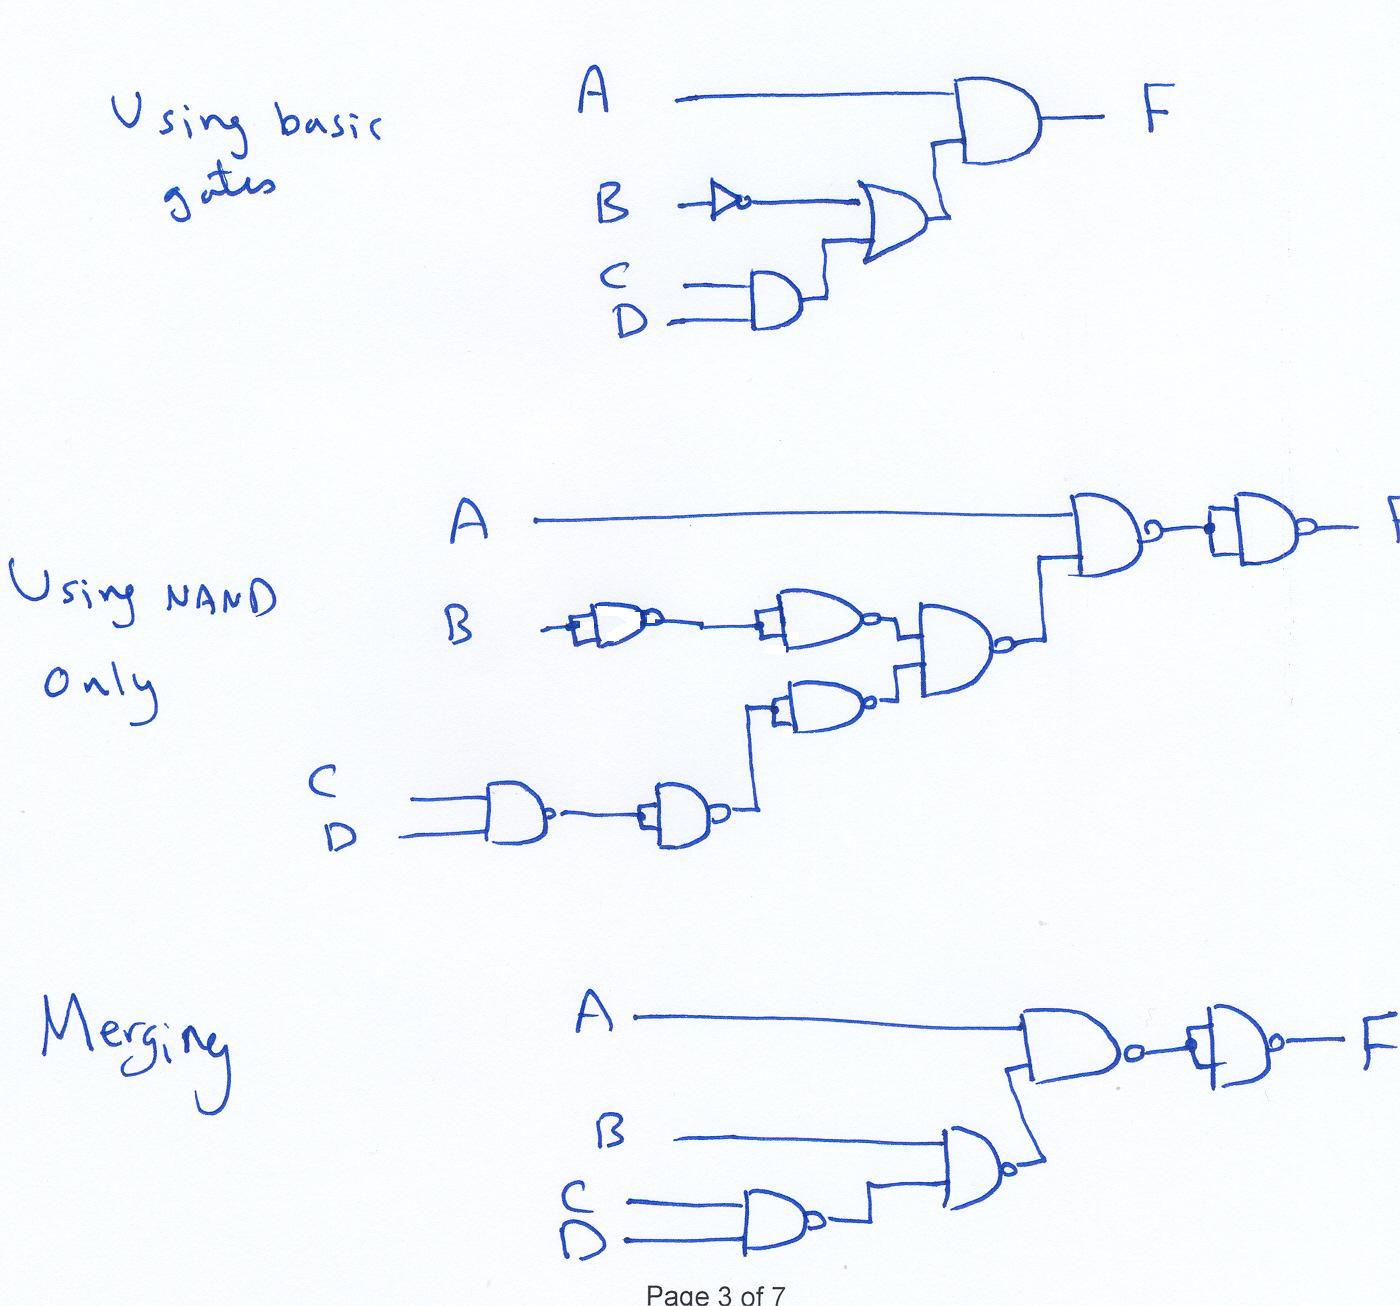 Using basic
gates
A
F
B
C
D
Using NAND
only
A
F
B
C
D
Merging
A
F
B
C
D
Page 3 of 7